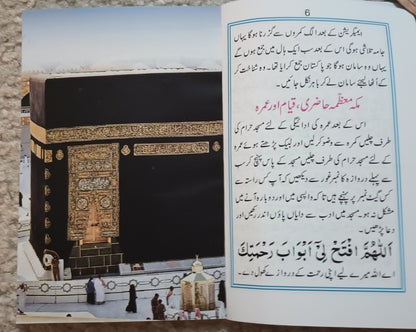 6
ایمیگریشن کے بعد الگ کمروں سے گزرنا ہوگا یہاں
جامہ تلاشی ہوگی اس کے بعد سب ایک ہال میں جمع ہوں گے
یہاں وہ سامان ہوگا جو پاکستان جمع کرایا تھا۔ وہ شناخت کر
کے اٹھا لیجئے سامان لے کر باہر نکل جائیں۔
مکہ معظّمہ حاضری، قیام اور عمرہ
اس کے بعد عمرہ کی ادائیگی کے لئے مسجد حرام کی
طرف چلیں گھر سے وضو کر لیں اور لبیک پڑھتے ہوئے عمرہ
کے لئے مسجد حرام کی طرف چلیں مسجد کے پاس پہنچ کر سب
سے پہلے دروازہ کا نمبر غور سے دیکھیں کہ آپ کس راستہ سے
کس گیٹ نمبر پر پہنچے ہیں تا کہ واپسی میں اور دوبارہ آنے میں
مشکل نہ ہو۔ مسجد میں ادب سے دایاں پاؤں اندر رکھیں اور
دعا پڑھیں۔
اَللّٰهُمَّ افْتَحْ لِىْٓ اَبْوَابَ رَحْمَتِكَ
اے اللہ میرے لیے اپنی رحمت کے دروازے کھول دے۔